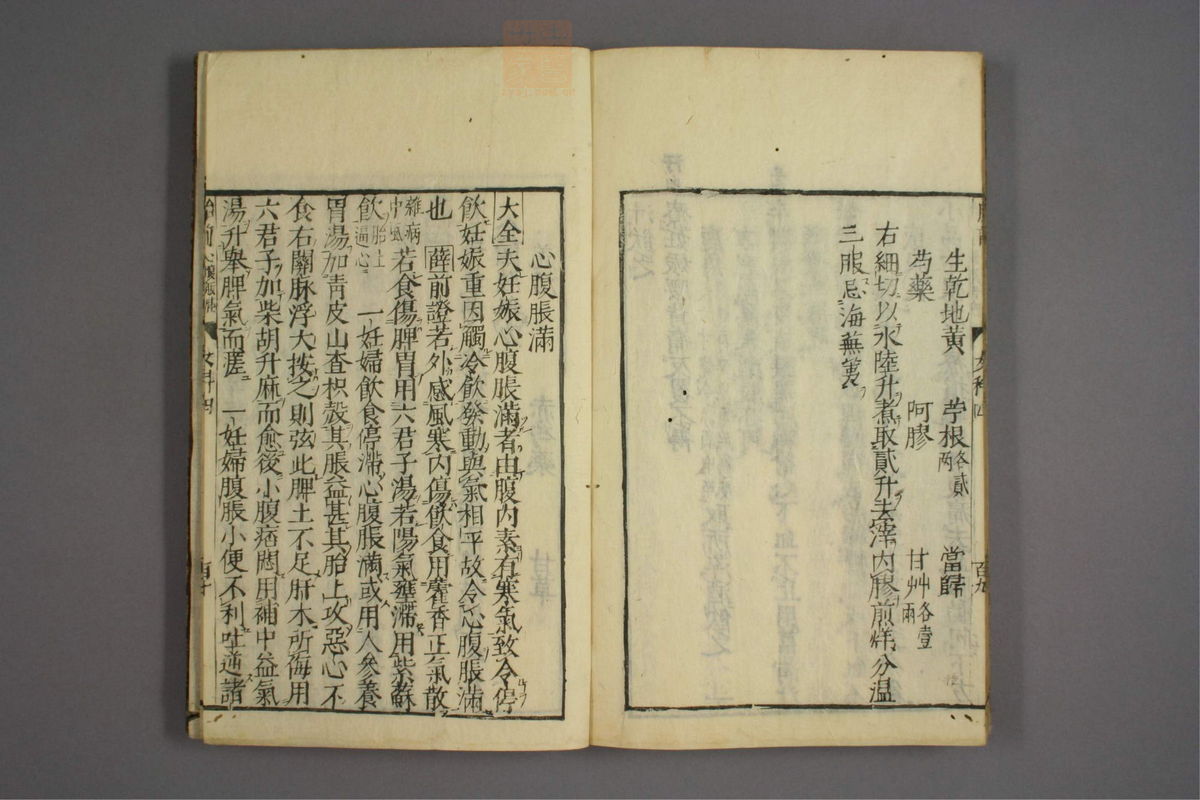 生乾地黄 苧根各貳兩 當歸
芍藥 阿膠 甘艸各壹兩
右細切以水陸升煮取貳升去滓内膠煎烊分温
三服忌海蕪荑
心腹脹滿
大全夫妊娠心腹脹滿者由腹内素有寒氣致令停
飲妊娠重因觸冷飲發動與氣相平故令心腹脹滿
也 薛前證若外感風寒内傷飲食用藿香正氣散
雜病中風若食傷脾胃用六君子湯若陽氣壅滯用紫蘇
飲胎上逼心 一妊婦飲食停滯心腹脹滿或用人參養
胃湯加青皮山査枳殼其脹益甚其胎上攻惡心不
食右關脉浮大按之則弦此脾土不足肝木所侮用
六君子加柴胡升麻而愈後小腹痞悶用補中益氣
湯升舉脾氣而瘥 一妊婦腹脹小便不利吐逆諸
胎前 心腹脹滿 女科四 百十